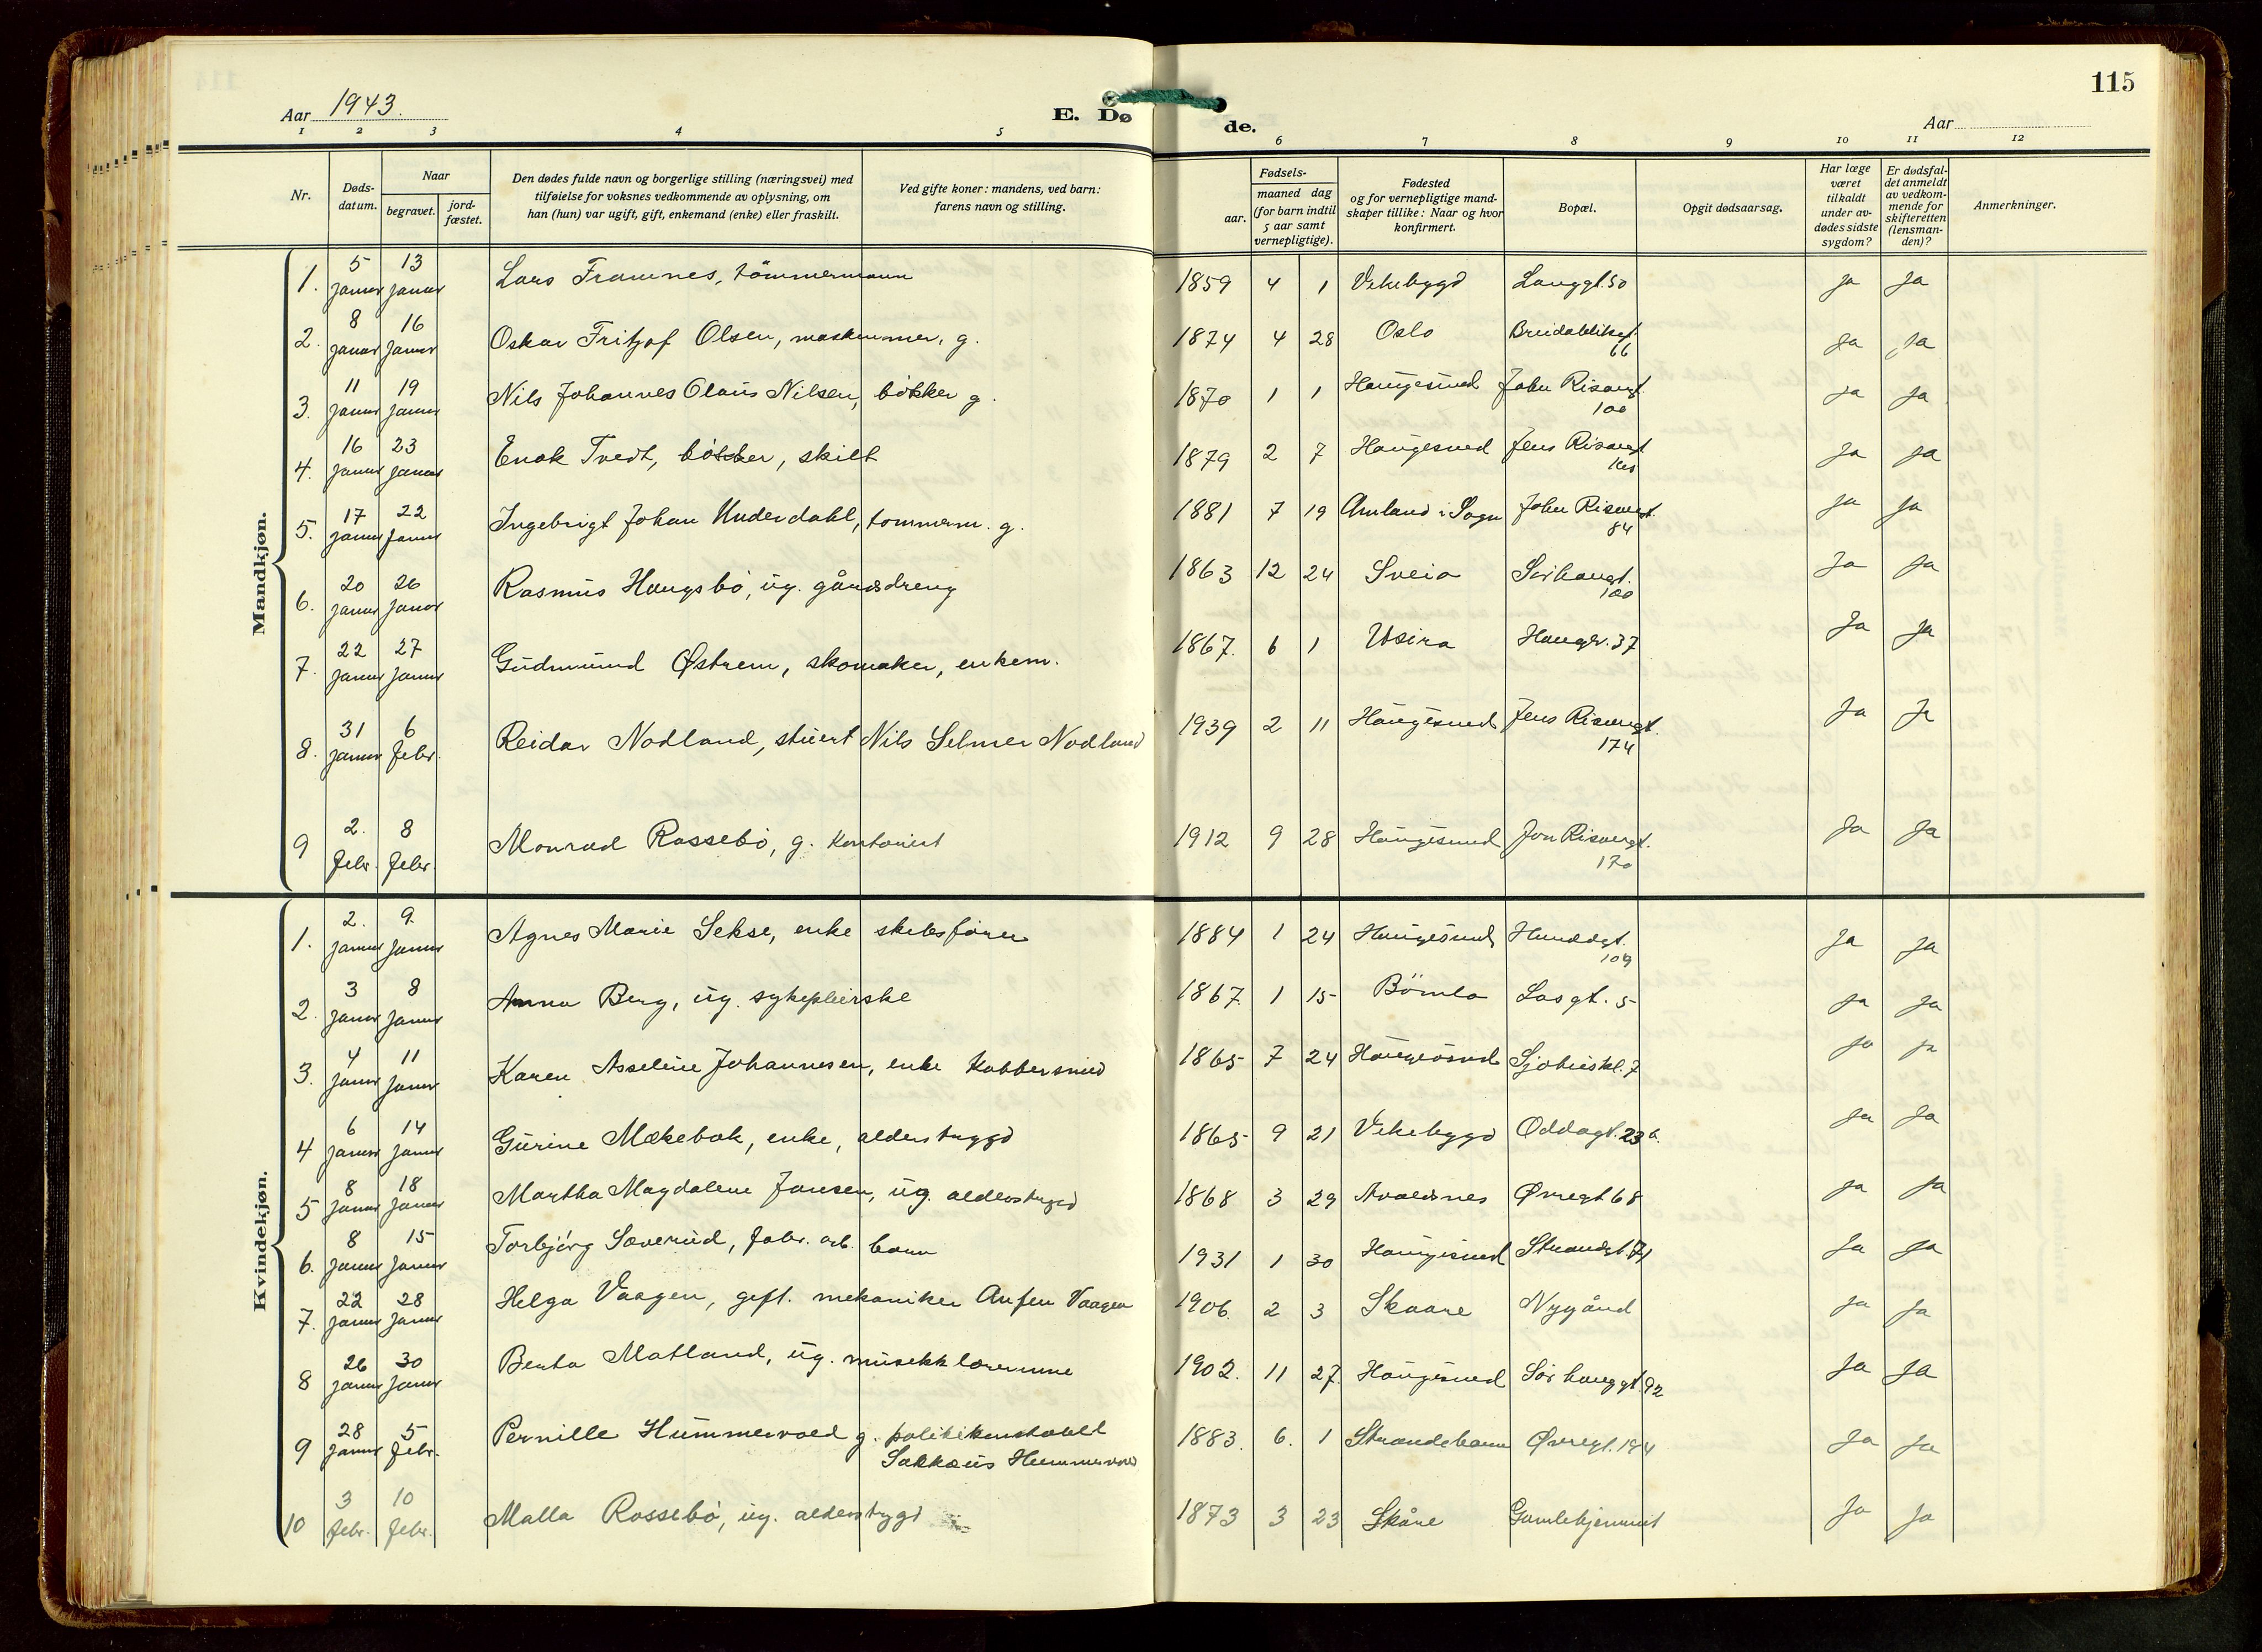 115
Aar 1943.
E. Dø
de.
Aar
1 2 3 4 5 6 7 8 9 10 11 12
Nr.
Døds-
datum.
Naar
begravet.
jord-
fæstet.
Den dødes fulde navn og borgerlige stilling (næringsvei) med
tilføielse for voksnes vedkommende av oplysning, om
han (hun) var ugift, gift, enkemand (enke) eller fraskilt.
Ved gifte koner: mandens, ved barn:
farens navn og stilling.
Fødsels-
aar.
maaned dag
(for barn indtil
5 aar samt
vernepligtige).
Fødested
og for vernepligtige mand-
skaper tillike: Naar og hvor
konfirmert.
Bopæl.
Opgit dødsaarsag.
Har læge
været
tilkaldt
under av-
dødes sidste
sygdom?
Er dødsfal-
det anmeldt
av vedkom-
mende for
skifteretten
(lensman-
den)?
Anmerkninger.
Mandkjøn.
1. 5 januar 13 januar Lars Framnes, tömmermann 1859 4 1 Vikebygd Langgt. 50 ja ja
2. 8 januar 16 januar Oskar Fritjof Olsen, g. 1874 4 28 Oslo Breidablikgt. 66 ja ja
3. 11 januar 19 januar Nils Johannes Olaus Nilsen, bökker g. 1870 1 1 Haugesund John Risøengt. 100 ja ja
4. 16 januar 23 januar Enok Tvedt, bökker, skilt 1879 2 7 Haugesund Jens Risøengt ja ja
5. 17 januar 22 januar Ingebrigt Johan Underdahl, tømmerm. g. 1881 7 19 Aurland i Sogn John Risøengt. 84 ja ja
6. 20 januar 26 januar Rasmus Haugsbö, ug. gårdsdreng 1863 12 24 Sveio Sörhauggt. 100 Ja ja
7. 22 januar 27 januar Gudmund Østrem, skomaker, enkem. 1867. 6 1 Utsira Haugv. 37 Ja ja
8. 31 januar 6 febr. Reidar Nodland, stuert Nils Selmer Nodland 1939 2 11 Haugesund Jens Risøengt. 174 Ja ja
9 2. febr. 8 febr. Monrad Rossebö, g. kontorist 1912 9 28 Haugesund Jon Risøengt. 170 Ja ja
Kvindekjøn.
1. 2. januar 9 januar Agnes Marie Sekse, enke skibsförer 1884 1 24 Haugesund 109 ja ja
2. 3 januar 8 januar Anna Berg, ug. sykepleirske 1867. 1 15 Bömlo Losgt. 5 ja ja
3. 4 januar 11 januar Karen Asseline Johannesen, enke kobbersmed 1865 7 24 Haugesund 7 ja ja
4 6 januar 14 januar Gurine Mækebak, enke, alderstrygd 1865 9 21 Vikebygd Oddagt. 23 b. ja ja
5 8 januar 18 januar Martha Magdalene Jansen, ug. alderstrygd 1868 3 29 Avaldsnes Øvregt 68 ja ja
6. 8 januar 15 januar Torbjörg Sæverud, fabr. arb. barn 1931 1 30 Haugesund Strandgt. 71 Ja ja
7. 22 januar 28 januar Helga Vaagen, gift. mekaniker Anfen Vaagen 1906. 2 3 Skaare Nygård ja ja
8 26 januar 30 januar Berta Matland, ug. musikklærerinne 1902. 11 27. Haugesund Sörhauggt. 92 Ja ja
9 28 januar 5 febr. Pernille Hummervoll g. politikonstabel
Sakkæus Hummervoll 1883. 6. 1 Strandebarm Øvregt. 194 Ja ja
10 3 febr. 10 febr. Malla Rossebö, ug. alderstrygd 1873 3 23 Skåre Gamlehjemmet Ja ja